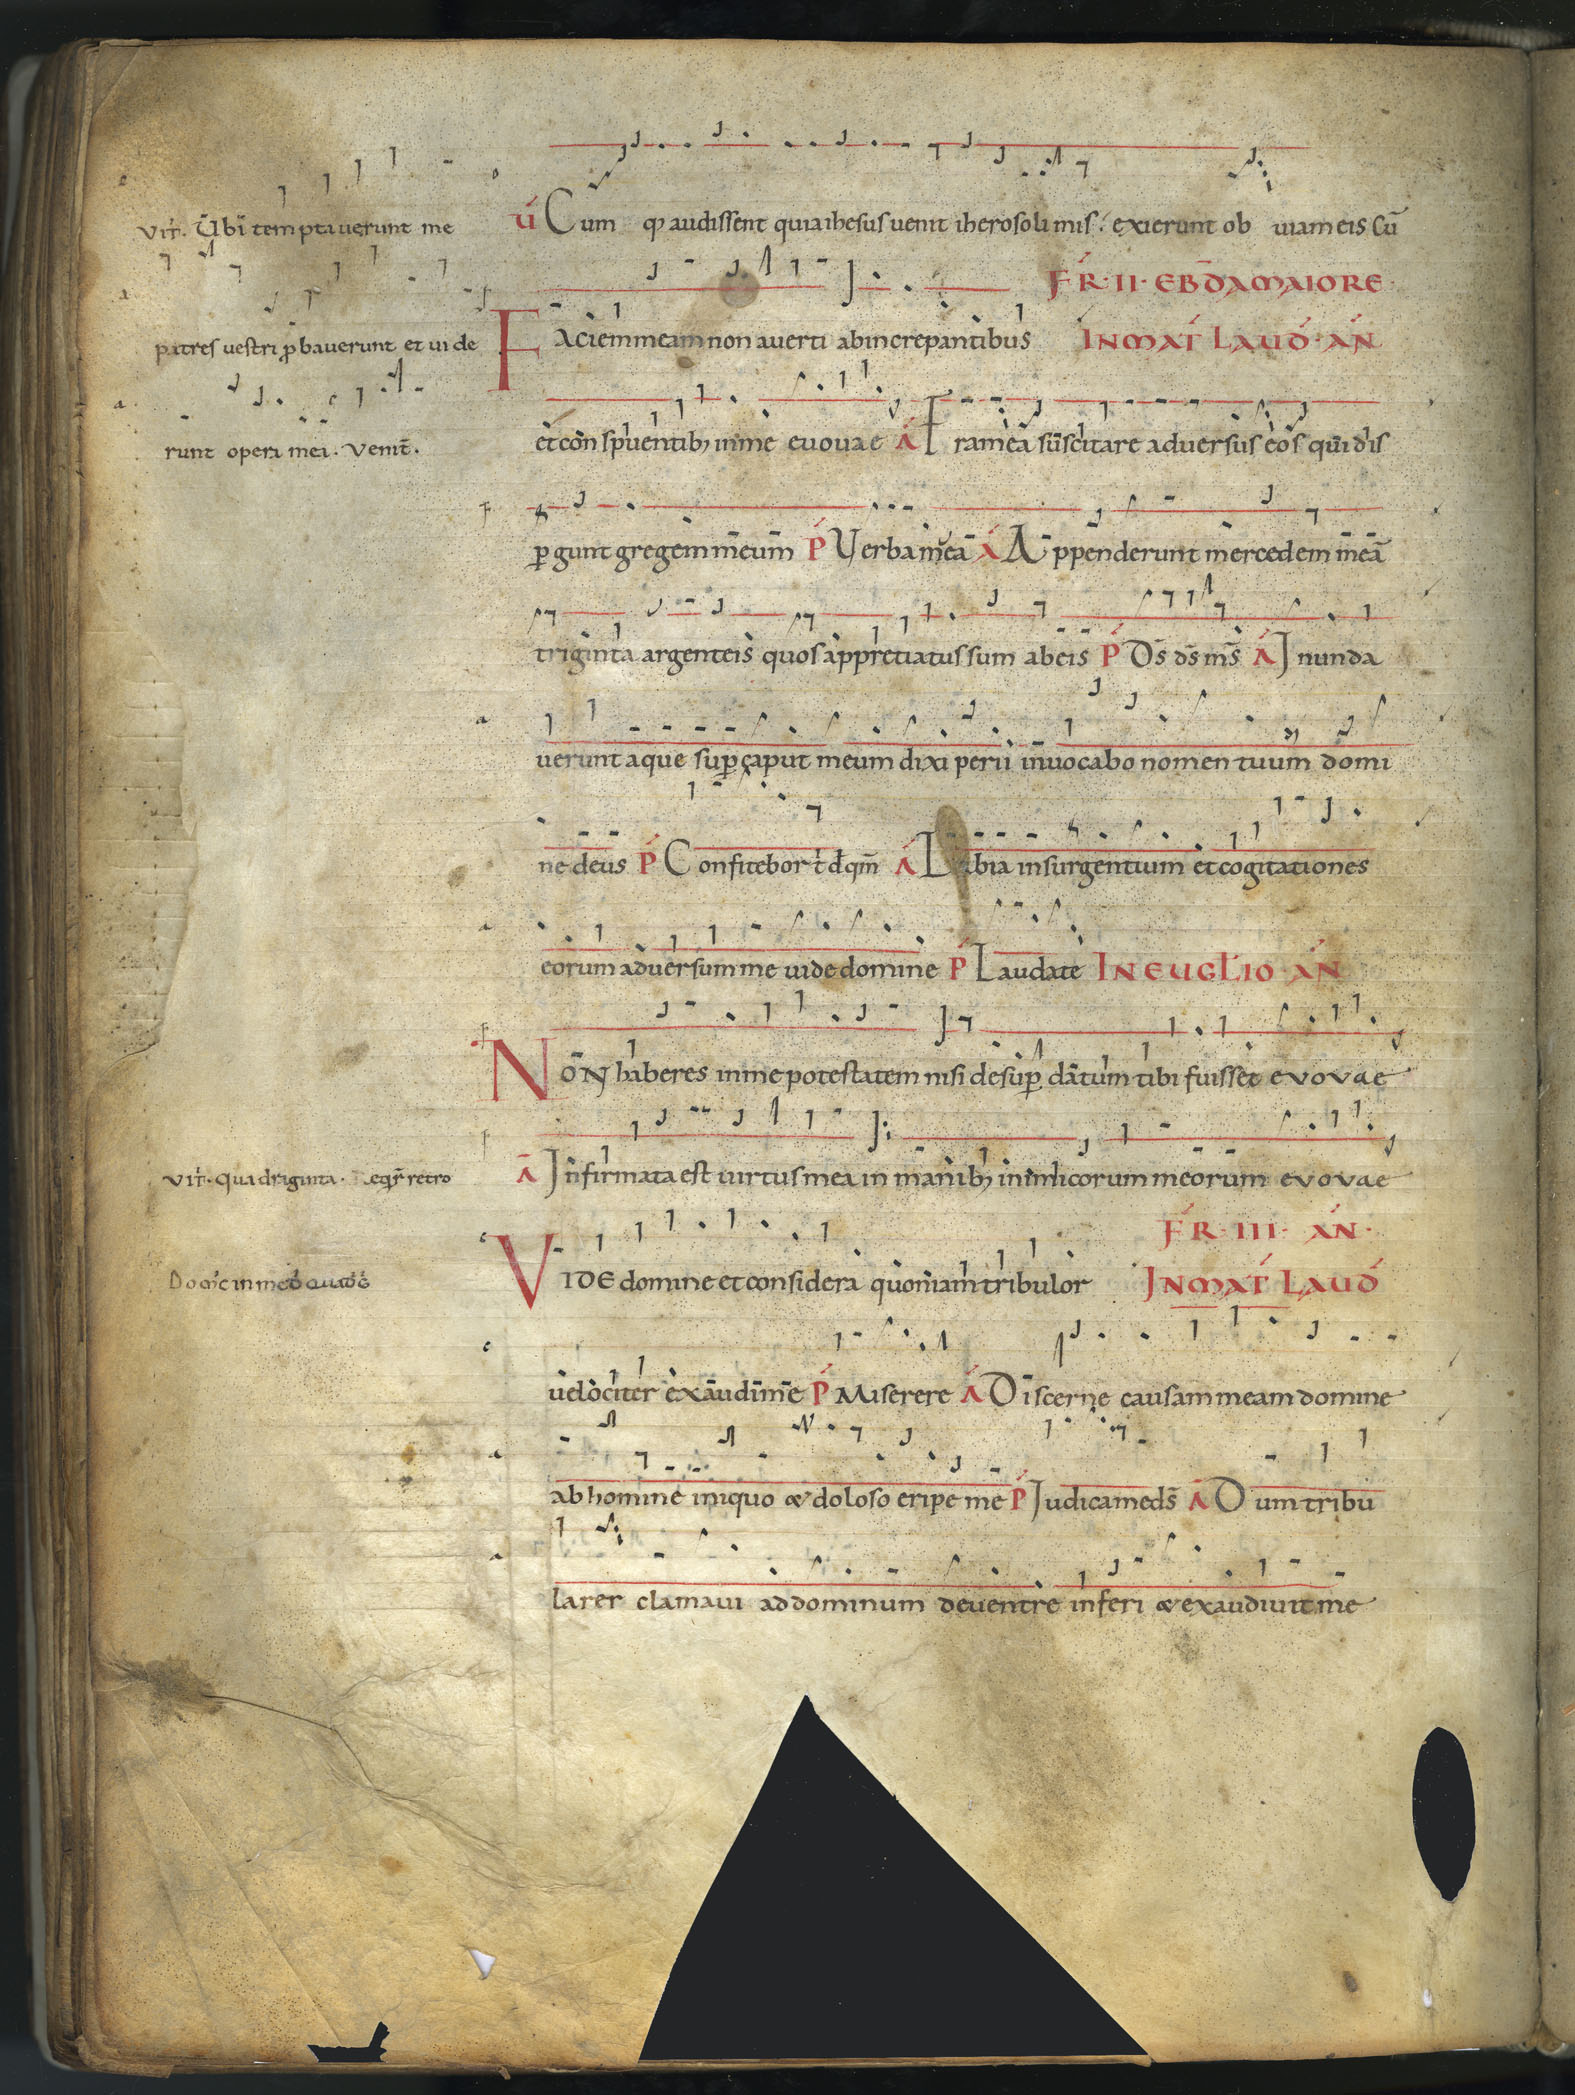 vir̄. Ubi temptaverunt me
patres vestri ꝓbaverunt et vide
runt opera mea. Venit̄.
ú Cum qꝫ audissent quia ihesus venit iherosolimis: exierunt obviam ei. Cū
FR̄. II. EBD̄A MAIORE.
Faciem meam non averti ab increpantibus IN MAT̄ LAUD̄. AN̄
et conspuentibꝫ in me evovae A Framea suscitare adversus eos qui dis
ꝑgunt gregem meum P̄ Verba mea A Appenderunt mercedem meā
triginta argenteis quos appretiatus sum ab eis P̄ D̄s d̄s m̄s A Inunda
verunt aque suꝑ caput meum dixi perii invocabo nomen tuum domi
ne deus P̄ Confitebor t̄ d̄ qm̄ A Labia insurgentium et cogitationes
eorum adversum me vide domine P̄ Laudate IN EUGL̄IO AN̄
Non haberes in me potestatem nisi desuꝑ datum tibi fuisset evovae
A Infirmata est virtus mea in manibꝫ inimicorum meorum evovae
vir̄. Quadraginta. retro
FR̄. III. AN̄.
Vide domine et considera quoniam tribulor IN MAT̄ LAUD̄
velociter exaudi me P̄ Miserere A Discerne causam meam domine
ab homine iniquo & doloso eripe me P̄ Judica me d̄s A Dum tribu
larer clamavi ad dominum de ventre inferi & exaudivit me